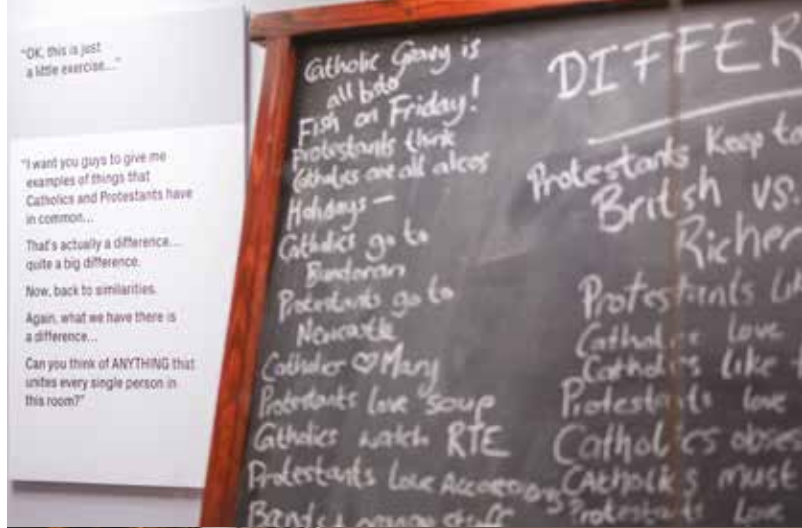 "OK, this is just
a little exercise..."
"I want you guys to give me
examples of things that
Catholics and Protestants have
in common...
That's actually a difference...
quite a big difference.
Now, back to similarities.
Again, what we have there is
a difference...
Can you think of ANYTHING that
unites every single person in
this room?"
Catholic Gravy is
all bisto
Fish on Friday!
Protestants think
Catholics are all alcos
Holidays —
Catholics go to
Bundoran
Protestants go to
Newcastle
Catholics ♡ Mary
Protestants love soup
Catholics watch RTE
Protestants Love Accordion
Bands & orange stuff
DIFFER
Protestants Keep to
British vs.
Richer
Protestants Li
Catholics love
Catholics like
Protestants love
Catholics obses
Catholics must
Protestants Love